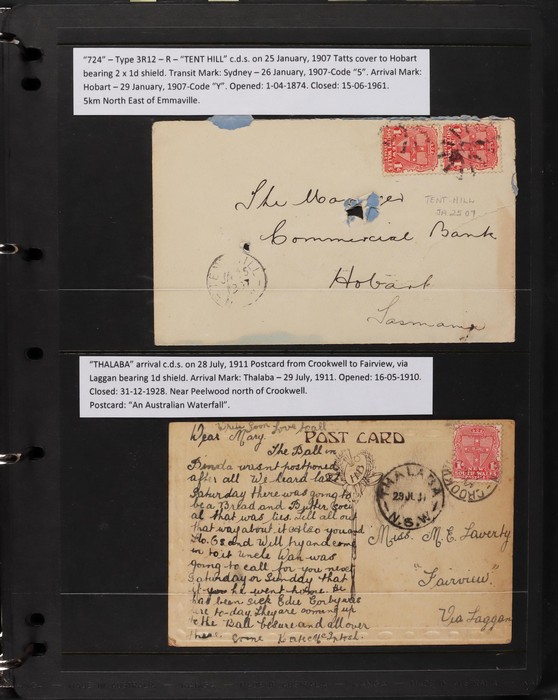 "724" – Type 3R12 – R – "TENT HILL" c.d.s. on 25 January, 1907 Tatts cover to Hobart
bearing 2 x 1d shield. Transit Mark: Sydney – 26 January, 1907-Code "5". Arrival Mark:
Hobart – 29 January, 1907-Code "Y". Opened: 1-04-1874. Closed: 15-06-1961.
5km North East of Emmaville.
TENT-HILL
JA 25 07
The Manager
Commercial Bank
Hobart
Tasmania
"THALABA" arrival c.d.s. on 28 July, 1911 Postcard from Crookwell to Fairview, via
Laggan bearing 1d shield. Arrival Mark: Thalaba – 29 July, 1911. Opened: 16-05-1910.
Closed: 31-12-1928. Near Peelwood north of Crookwell.
Postcard: "An Australian Waterfall".
POST CARD
Write soon Love to all
Dear Mary.
The Ball in
Binda wasnt postponed
after all We heard last
Saturday there was going to
be a Bread and Butter Soci
al that was lies. Tell all out
that way about it Also you and
and Will try and come
in to it Uncle Dan was
going to call for you next
Saturday or Sunday that
he went home. He
has been sick Edie
are to-day They are coming up
to the Ball be sure and all over
there. Come
THALABA
29 JL 11
N.S.W
Miss. M. E. Laverty
"Fairview"
Via Laggan